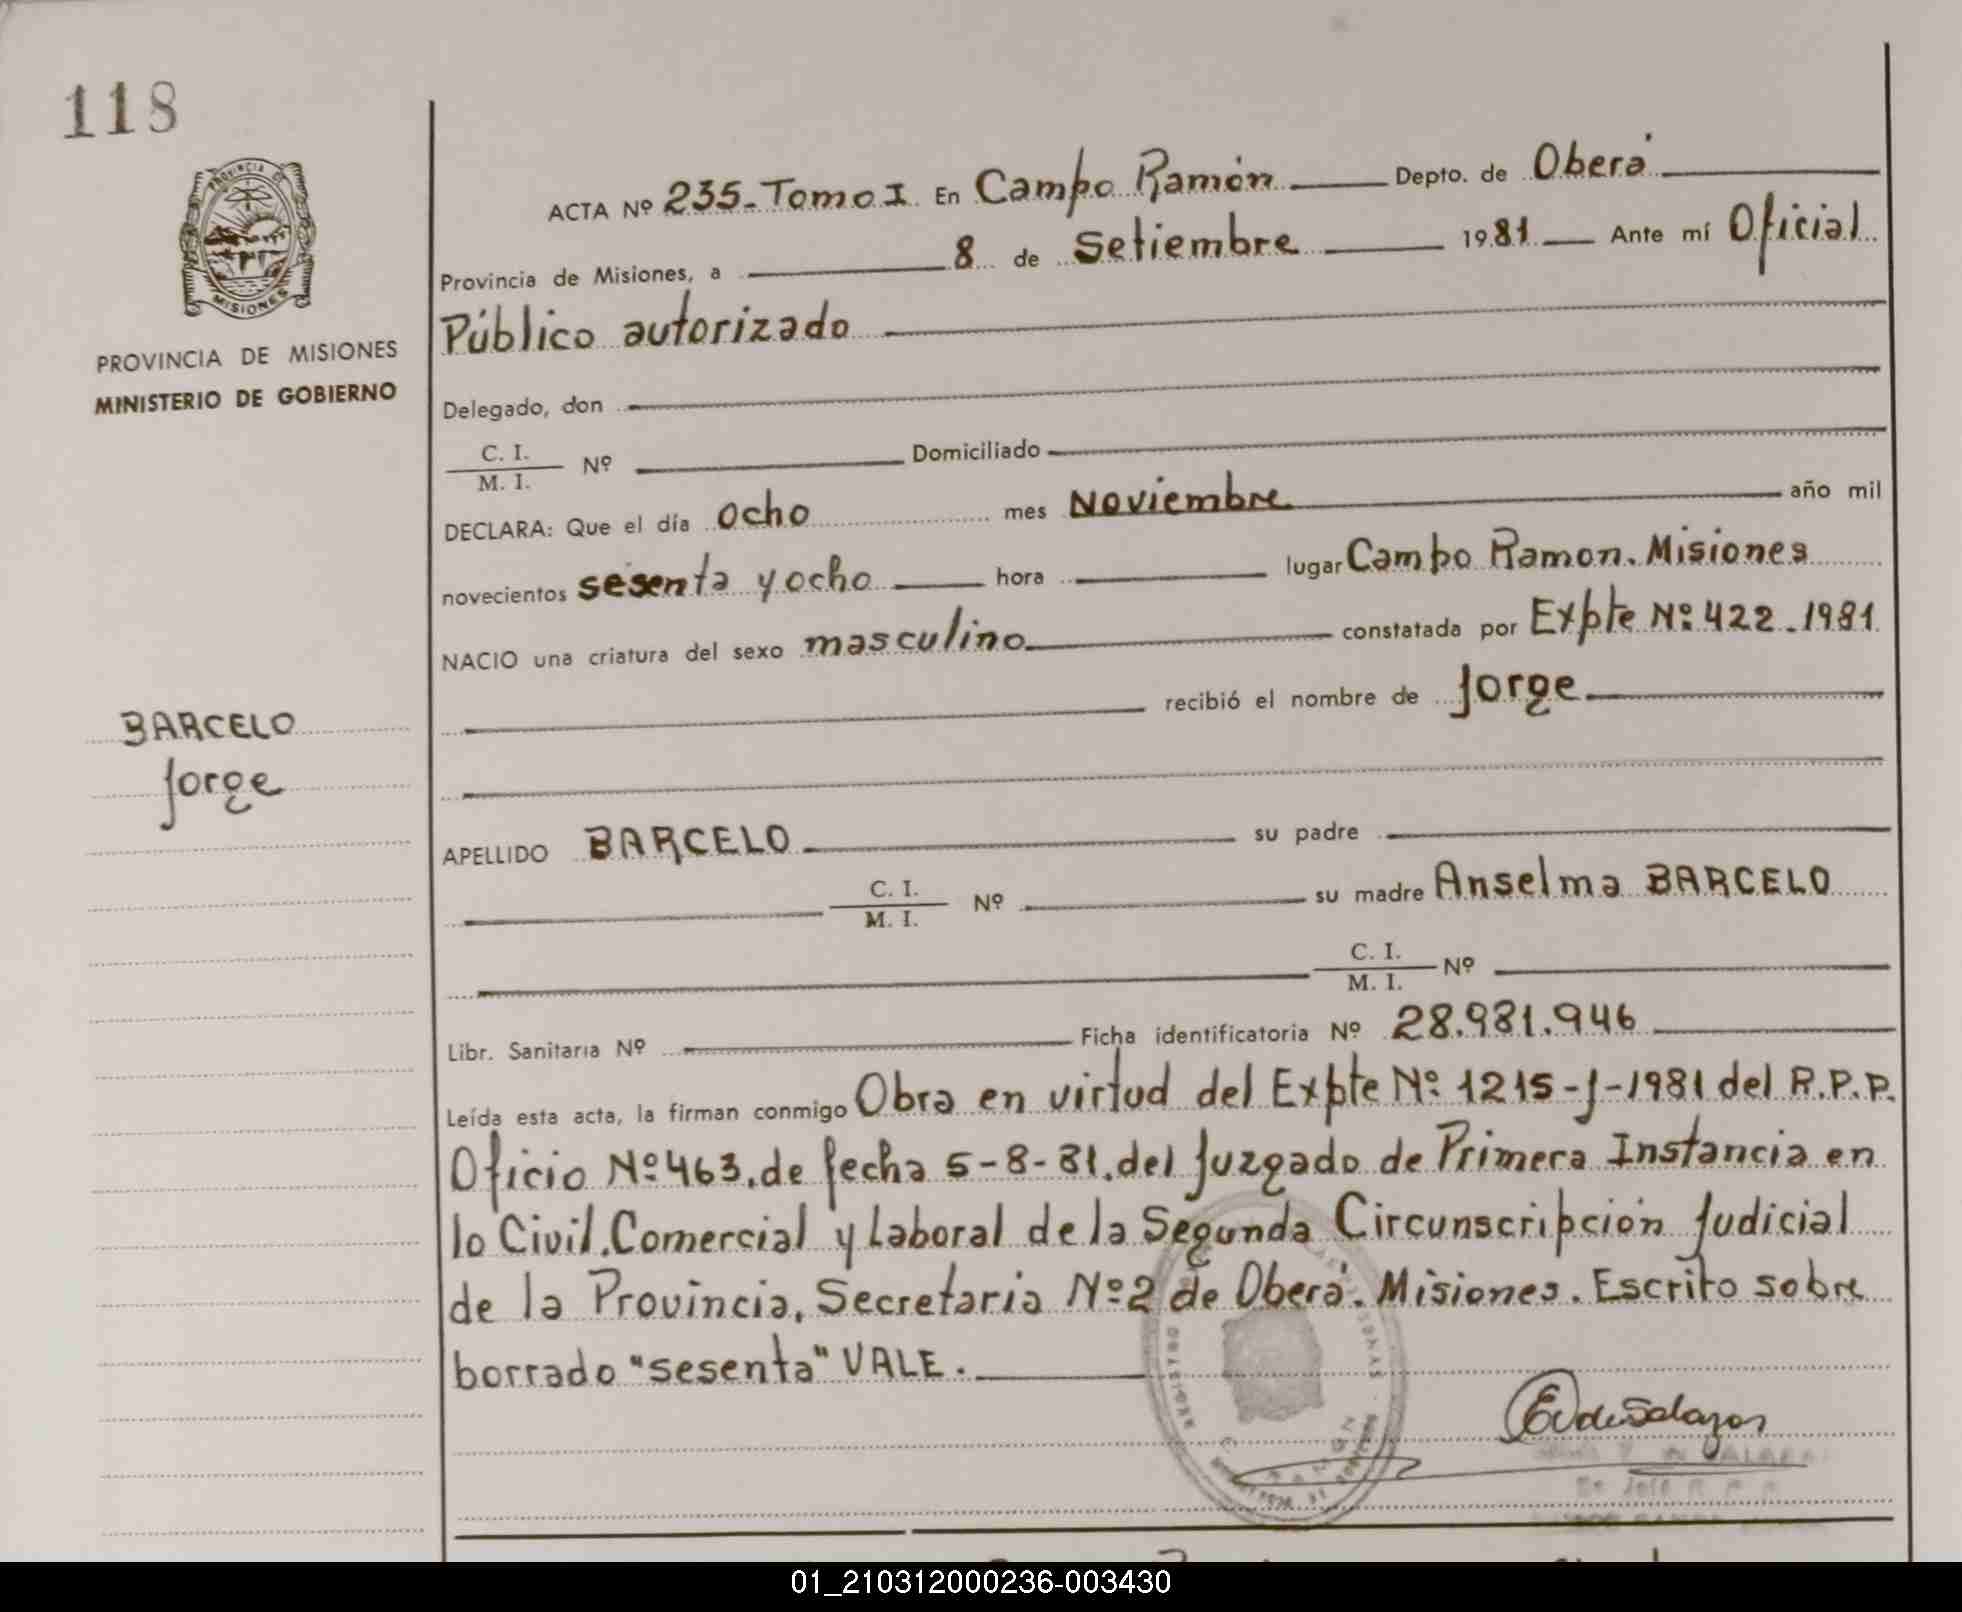 118
PROVINCIA DE
MISIONES
PROVINCIA DE MISIONES
MINISTERIO DE GOBIERNO
BARCELO
Jorge
ACTA Nº 235-Tomo I En Campo Ramón Depto. de Oberá
Provincia de Misiones, a 8 de Setiembre 1981 Ante mí Oficial
Público autorizado
Delegado, don
C. I.
M. I. Nº Domiciliado
DECLARA: Que el día ocho mes Noviembre año mil
novecientos sesenta y ocho hora lugar Campo Ramon. Misiones
NACIO una criatura del sexo masculino constatada por Expte Nº 422-1981
recibió el nombre de Jorge
APELLIDO BARCELO su padre
C. I.
M. I. Nº su madre Anselma BARCELO
C. I.
M. I. Nº
Libr. Sanitaria Nº Ficha identificatoria Nº 28.981.946
Leída esta acta, la firman conmigo Obra en virtud del Expte Nº 1215-J-1981 del R.P.P.
Oficio Nº 463, de fecha 5-8-81, del Juzgado de Primera Instancia en
lo Civil, Comercial y Laboral de la Segunda Circunscripción Judicial
de la Provincia, Secretaria Nº 2 de Oberá. Misiones. Escrito sobre
borrado "sesenta" VALE.
EvdeSalazar
01_210312000236-003430